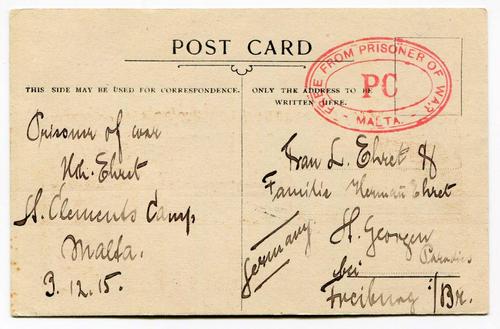 POST CARD
THIS SIDE MAY BE USED FOR CORRESPONDENCE.
ONLY THE ADDRESS TO BE
WRITTEN HERE.
FREE FROM PRISONER OF WAR
PC
MALTA.
Prisoner of war
Hth. Ehret
St. Clements Camp
Malta.
3.12.15.
Frau L. Ehret &
Familie Hermañ Ehret
St. Georgen
Paradies
bei
Freiburg i/Br.
Germany